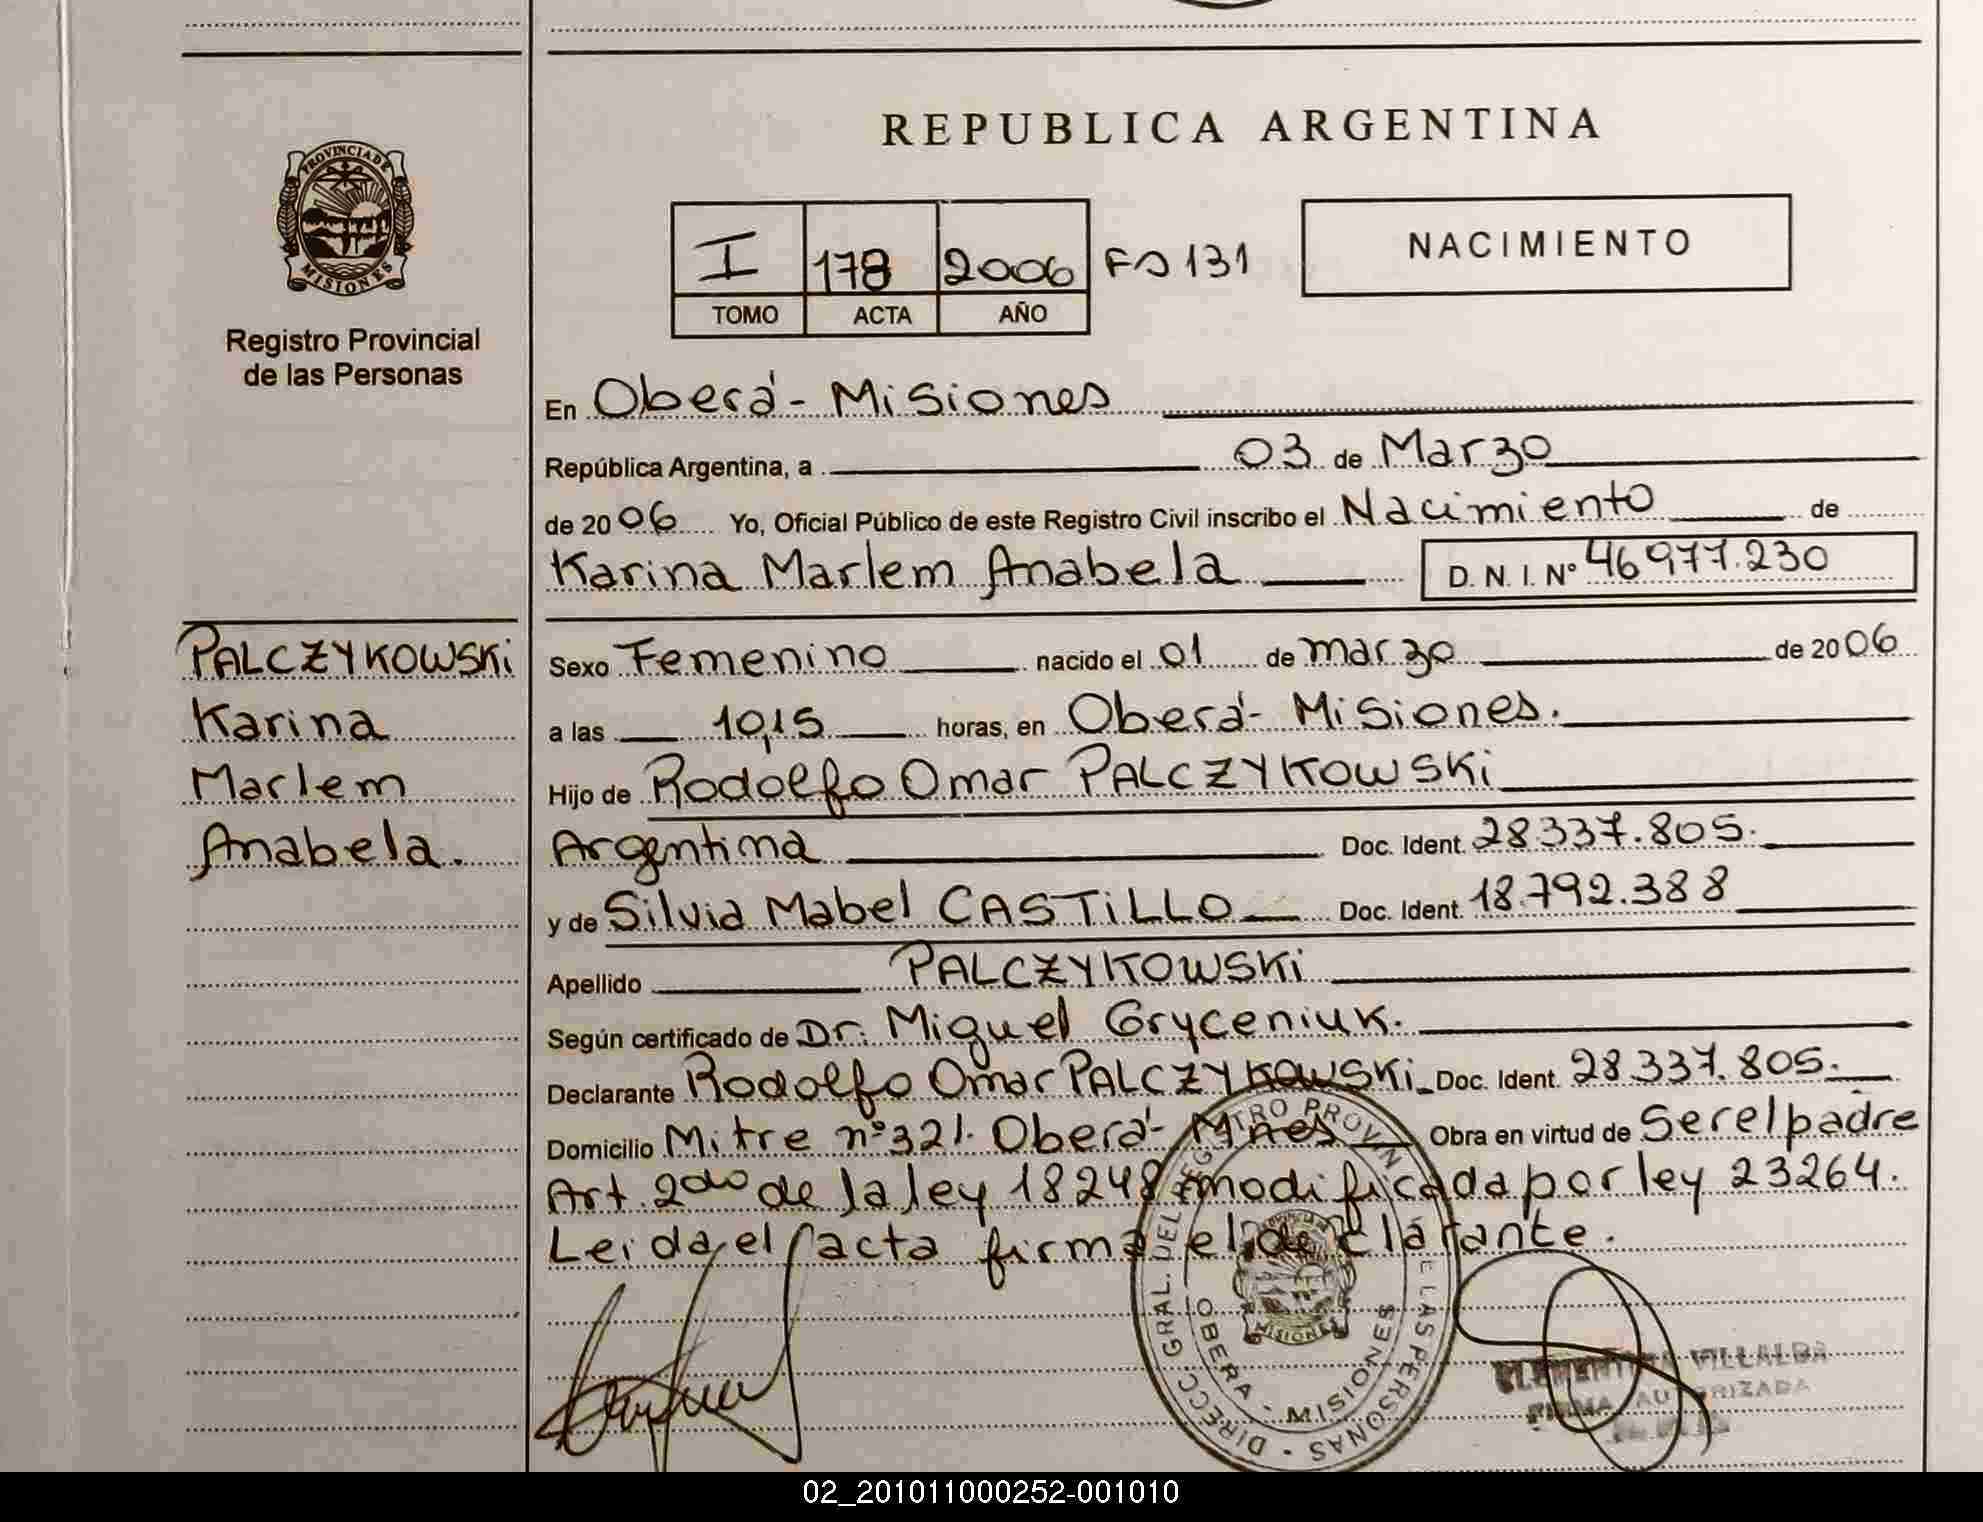 REPUBLICA ARGENTINA
PROVINCIA DE
MISIONES
Registro Provincial
de las Personas
I 178 2006 Fº 131
TOMO ACTA AÑO
NACIMIENTO
En Oberá - Misiones
República Argentina, a 03 de Marzo
de 2006 Yo, Oficial Público de este Registro Civil inscribo el Nacimiento de
Karina Marlem Anabela D. N. I. Nº 46977.230
PALCZYKOWSKi
Karina
Marlem
Anabela.
Sexo Femenino nacido el 01 de marzo de 2006
a las 10,15 horas, en Oberá - Misiones.
Hijo de Rodolfo Omar PALCZYKOWSKi
Argentina Doc. Ident. 28.337.805.
y de Silvia Mabel CASTiLLO Doc. Ident. 18.792.388
Apellido PALCZYKOWSKi
Según certificado de Dr. Miguel Gryceniuk.
Declarante Rodolfo Omar PALCZYKOWSKi Doc. Ident. 28.337.805.
Domicilio Mitre nº 321. Oberá - Mnes Obra en virtud de Ser el padre
Art. 2do de la ley 18248 modificada por ley 23264.
Leida el acta firma el declarante.
DIRECC. GRAL. DEL REGISTRO PROVINCIAL DE LAS PERSONAS
OBERA - MISIONES
MISIONES
VILLALBA
FIRMA AUTORIZADA
02_201011000252-001010